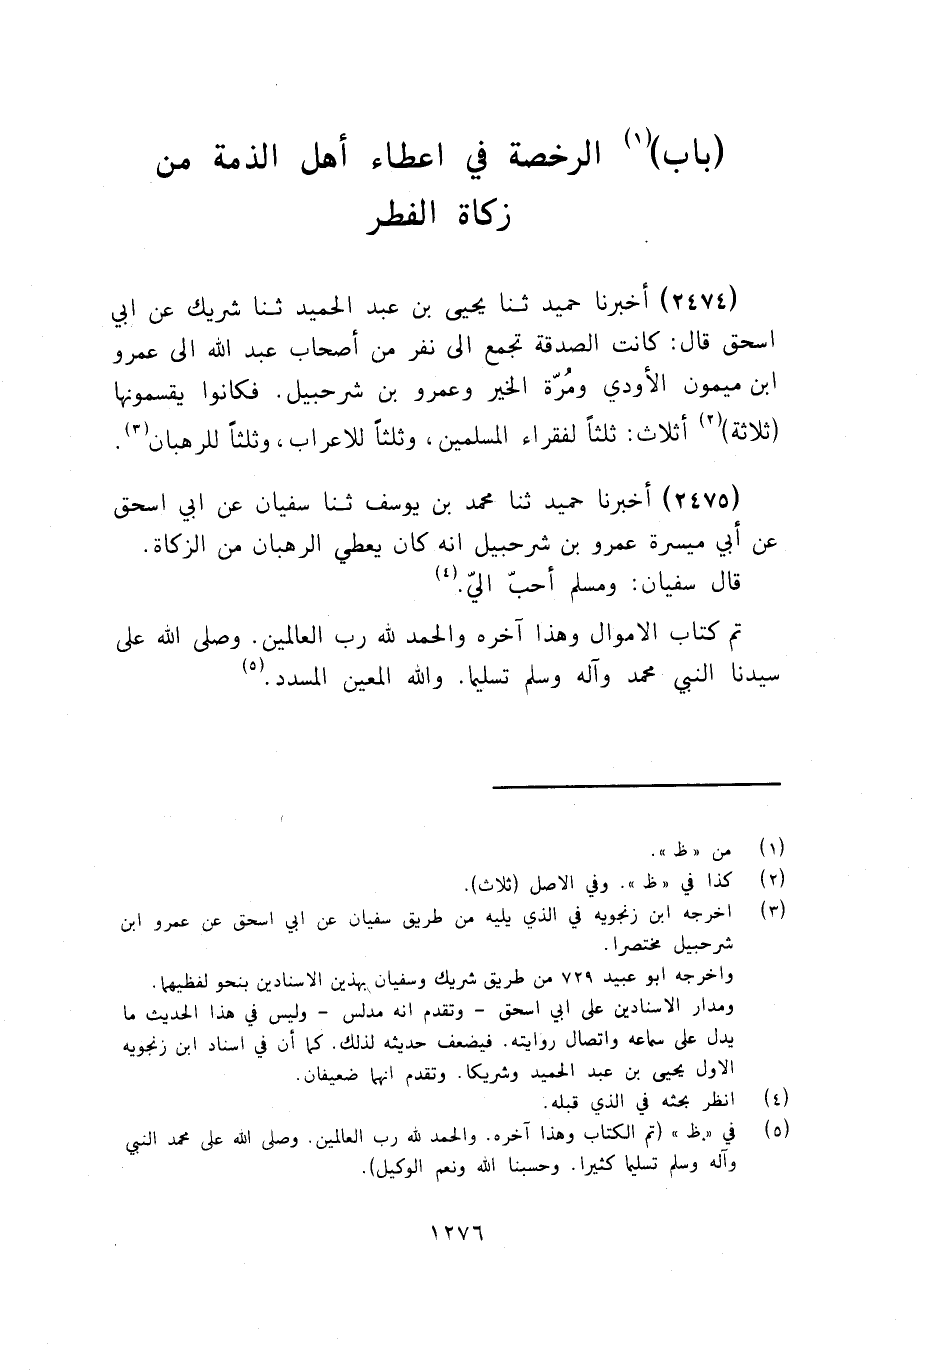 (باب)(١) الرخصة في اعطاء أهل الذمة من
زكاة الفطر
(٢٤٧٤) أخبرنا حميد ثنا يحيى بن عبد الحميد ثنا شريك عن ابي
اسحق قال: كانت الصدقة تجمع الى نفر من أصحاب عبد الله الى عمرو
ابن ميمون الأودي ومُرّة الخير وعمرو بن شرحبيل. فكانوا يقسمونها
(ثلاثة)(٢) أثلاث: ثلثاً لفقراء المسلمين، وثلثاً للاعراب، وثلثاً للرهبان(٣).
(٢٤٧٥) أخبرنا حميد ثنا محمد بن يوسف ثنا سفيان عن ابي اسحق
عن أبي ميسرة عمرو بن شرحبيل انه كان يعطي الرهبان من الزكاة.
قال سفيان: ومسلم أحبّ اليّ.(٤)
تم كتاب الاموال وهذا آخره والحمد لله رب العالمين. وصلى الله على
سيدنا النبي محمد وآله وسلم تسليما. والله المعين المسدد.(٥)
(١) من « ظ ».
(٢) كذا في « ظ ». وفي الاصل (ثلاث).
(٣) اخرجه ابن زنجويه في الذي يليه من طريق سفيان عن ابي اسحق عن عمرو ابن
شرحبيل مختصرا.
واخرجه ابو عبيد ٧٢٩ من طريق شريك وسفيان بهذين الاسنادين بنحو لفظيهما.
ومدار الاسنادين على ابي اسحق - وتقدم انه مدلس - وليس في هذا الحديث ما
يدل على سماعه واتصال روايته. فيضعف حديثه لذلك. كما أن في اسناد ابن زنجويه
الاول يحيى بن عبد الحميد وشريكا. وتقدم انهما ضعيفان.
(٤) انظر بحثه في الذي قبله.
(٥) في « ظ » (تم الكتاب وهذا آخره. والحمد لله رب العالمين. وصلى الله على محمد النبي
وآله وسلم تسليما كثيرا. وحسبنا الله ونعم الوكيل).
١٢٧٦